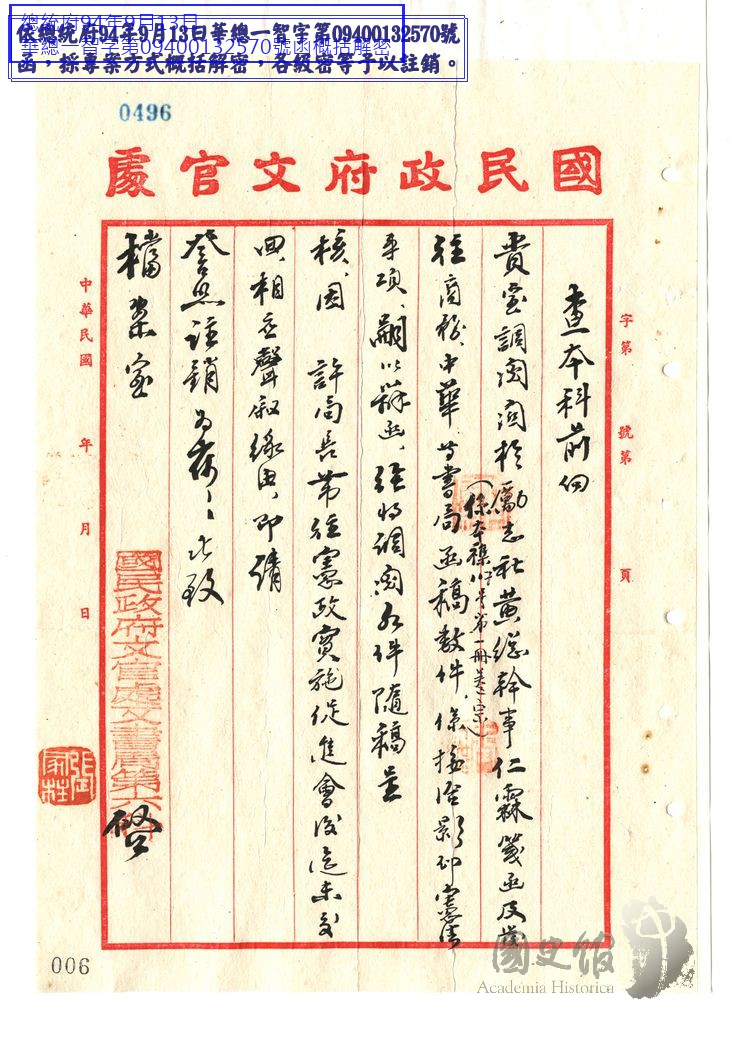 總統府94年9月13日
華總一智字第09400132570號函概括解密
依總統府94年9月13日華總一智字第09400132570號
函，採專案方式概括解密，各級密等予以註銷。
0496
國民政府文官處
字第 號第 頁
查本科前向
貴室調閱關於勵志社黃總幹事仁霖箋函及
(係
第一冊
宗)
往商務、中華等書局函稿數件，係接洽影印憲法
專項，嗣以辭函，經將調閱各件隨稿呈
核，因 許局長帶往憲政實施促進會後迄未交
回，相應聲敘緣由，即請
詧照註銷為荷。此致
檔案室
國民政府文官處文書局第六科
啓
中華民國 年 月 日
006
國史館
Academia Historica